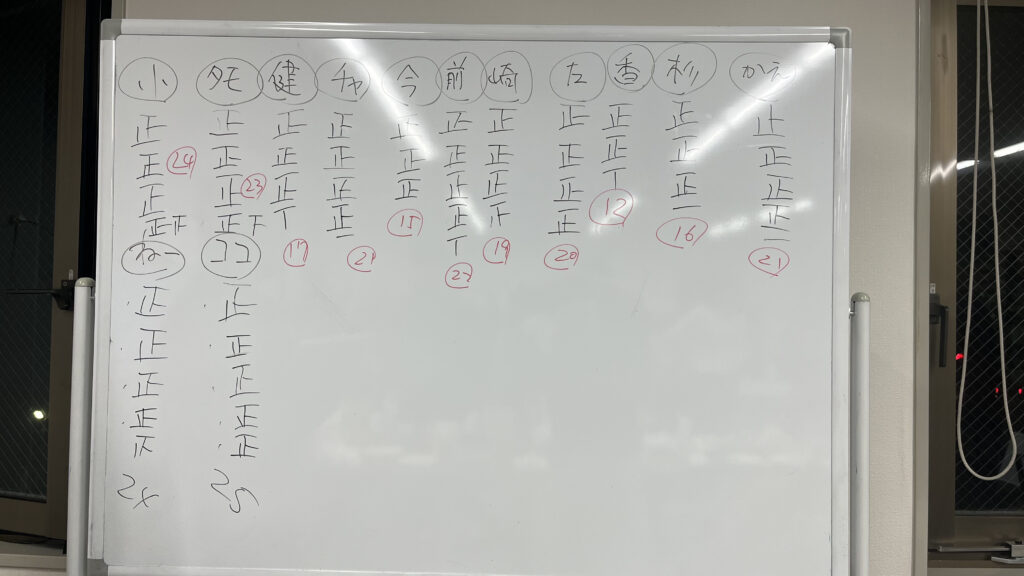 小 タモ 健 チャ 今 前 崎 左 香 杉 かえ
正 正 正 正 正 正 正 正 正 正 正
正 24 正 正 正 正 正 正 正 正 正 正
正 正 23 正 正 正 正 正 正 T 正 正
正 正 T 正 15 正 正 12 一 正
T 16 一
17 21 22 19 20 21
ねー ココ
正 正
正 正
正 正
正 正
正
25